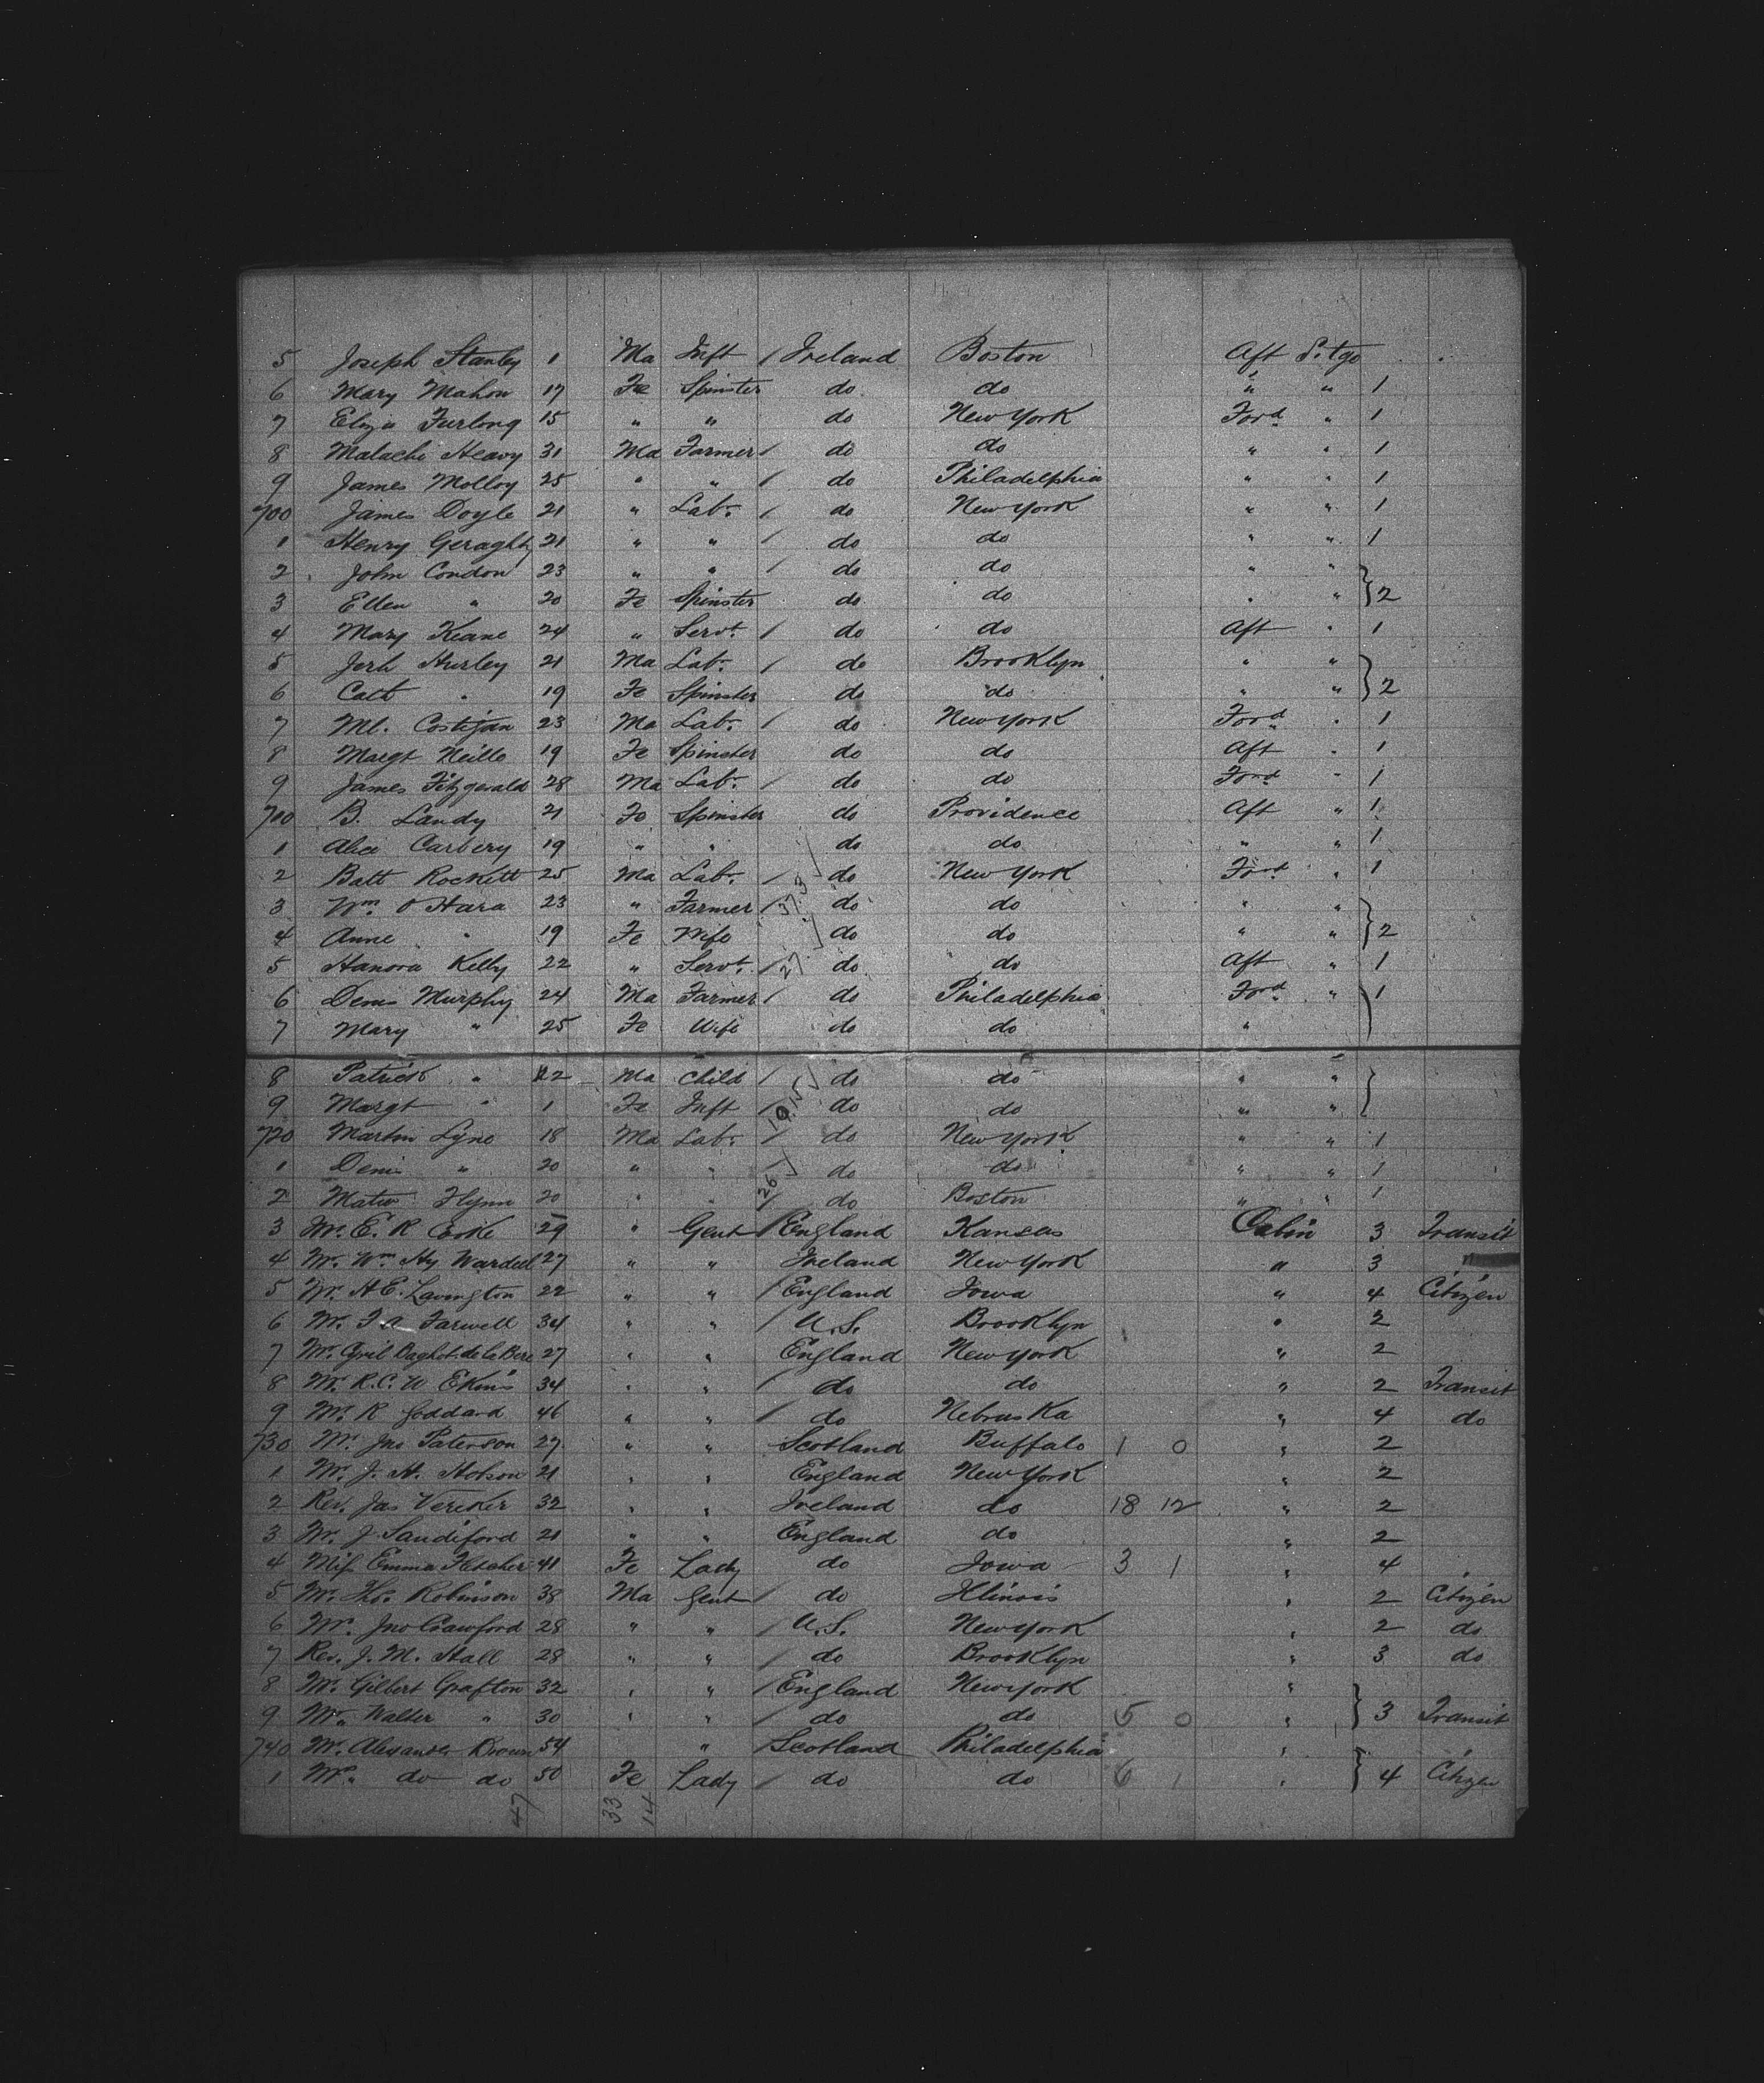 5 Joseph Stanley 1 Ma Inft / Ireland Boston Aft Sttge
6 Mary Mahon 17 Fe Spinster do do " " 1
7 Eliza Furlong 15 " " do New York Ford " 1
8 Malachi Heavy 31 Ma Farmer / do do " " 1
9 James Molloy 25 " " / do Philadelphia " " 1
700 James Doyle 21 " Labr / do New York " " 1
1 Henry Geraghty 21 " " / do do " " 1
2 John Condon 23 " " / do do " "
3 Ellen " 20 Fe Spinster do do " " } 2
4 Mary Keane 24 " Servt / do do Aft " 1
5 Jerh Hurley 21 Ma Labr / do Brooklyn " "
6 Cath " 19 Fe Spinster do do " " } 2
7 Ml. Costigan 23 Ma Labr / do New York Ford " 1
8 Margt Neille 19 Fe Spinster do do Aft " 1
9 James Fitzgerald 28 Ma Labr / do do Ford " 1
710 B. Landy 21 Fe Spinster do Providence Aft " 1
1 Alice Carbery 19 " " do do " " 1
2 Batt Rockett 25 Ma Labr / do New York Ford " 1
3 Wm O'Hara 23 " Farmer / do do " "
4 Anne " 19 Fe Wife do do " " } 2
5 Hanora Kelly 22 " Servt / 27 do do Aft " 1
6 Denis Murphy 24 Ma Farmer / do Philadelphia Ford " 1
7 Mary " 25 Fe Wife do do "
8 Patrick " 2 Ma Child / do do " " }
9 Margt " 1 Fe Inft / do do " "
720 Martin Lyne 18 Ma Labr / do New York " " 1
1 Denis " 20 " " do do " " 1
2 Matw Flynn 20 " " 26 / do Boston " " 1
3 Mr. E. R 29 " Gent / England Kansas Cabin 3 Transit
4 Mr. Wm Hy Wardell 27 " " Ireland New York " 3
5 Mr. H E. Lavington 22 " " / England Iowa " 4 Citizen
6 Mr. F A Farwell 34 " " / U.S. Brooklyn " 2
7 Mr. Cyril Baghot de la Bere 27 " " England New York " 2
8 Mr. R. C. W Ekins 34 " " / do do " 2 Transit
9 Mr. R Goddard 46 " " / do Nebraska " 4 do
730 Mr. Jno Paterson 27 " " Scotland Buffalo 1 0 " 2
1 Mr. J. H. Hobson 21 " " England New York " 2
2 Rev. Jas Vereker 32 " " Ireland do 18 12 " 2
3 Mr. J. Sandiford 21 " " England do " 2
4 Miss Emma Fletcher 41 Fe Lady do Iowa 3 1 " 4
5 Mr. Thos. Robinson 38 Ma Gent / do Illinois " 2 Citizen
6 Mr. Jno Crawford 28 " " / U.S. New York " 2 do
7 Rev. J. M. Hall 28 " " / do Brooklyn " 3 do
8 Mr. Gilbert Grafton 32 " " / England New York "
9 Mr. Walter " 30 " " / do do 5 0 " } 3 Transit
740 Mr. Alexander Brown 54 " Scotland Philadelphia "
1 Mrs. do do 50 Fe Lady / do do 6 1 " } 4 Citizen
47 33 14